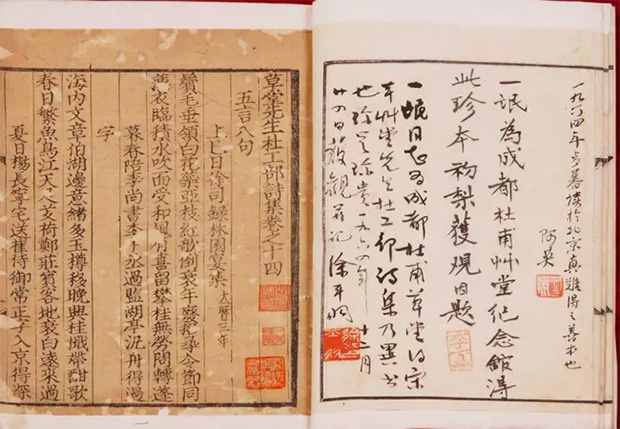 一九六四年歲暮讀於北京真難得之善本也
阿英
一氓為成都杜甫艸堂纪念館得
此珍本初梨獲觀因題
一氓同志为成都杜甫草堂得宋
本艸堂先生杜工部詩集乃異書
也 珍貴一九六四年十二月
廿四日獲觀并記徐平羽
草堂先生杜工部詩集卷之十四
五言八句
上巳日徐司錄林園宴集 大曆三年
鬢毛垂領白花蘂亞枝紅欹倒衰年廢招尋令節同
薄衣臨積水吹面受和風有喜留攀桂無勞問轉蓬
暮春陪李尚書李中丞過鄭監湖亭汎舟得過
字
海內文章伯湖邊意緒多玉樽移晚興桂檝帶酣歌
春日繁魚鳥江天足芰荷鄭莊賓客地衰白遠來過
夏日楊長寧宅送崔侍御常正字入京得深